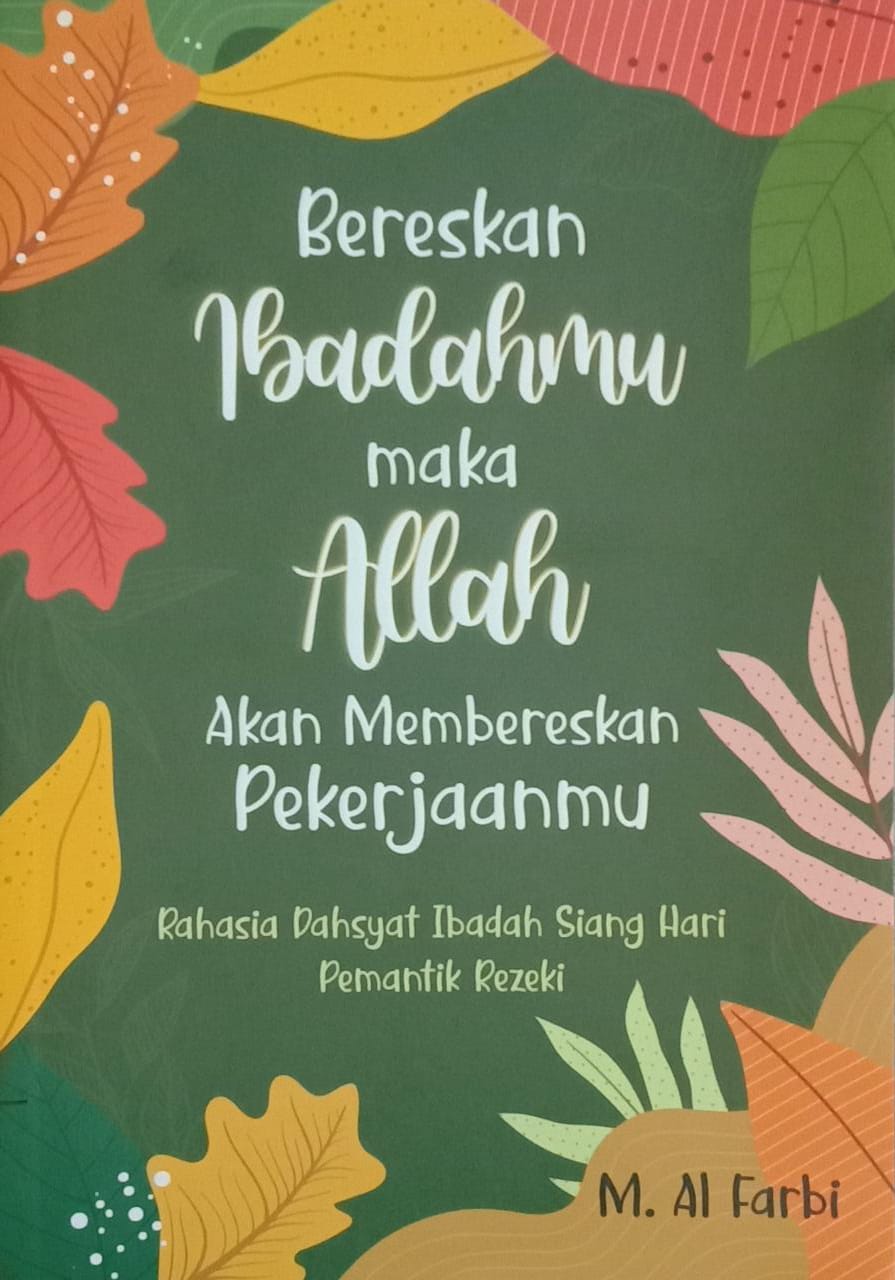 Bereskan
Ibadahmu
maka
Allah
Akan Membereskan
Pekerjaanmu
Rahasia Dahsyat Ibadah Siang Hari
Pemantik Rezeki
M. Al Farbi